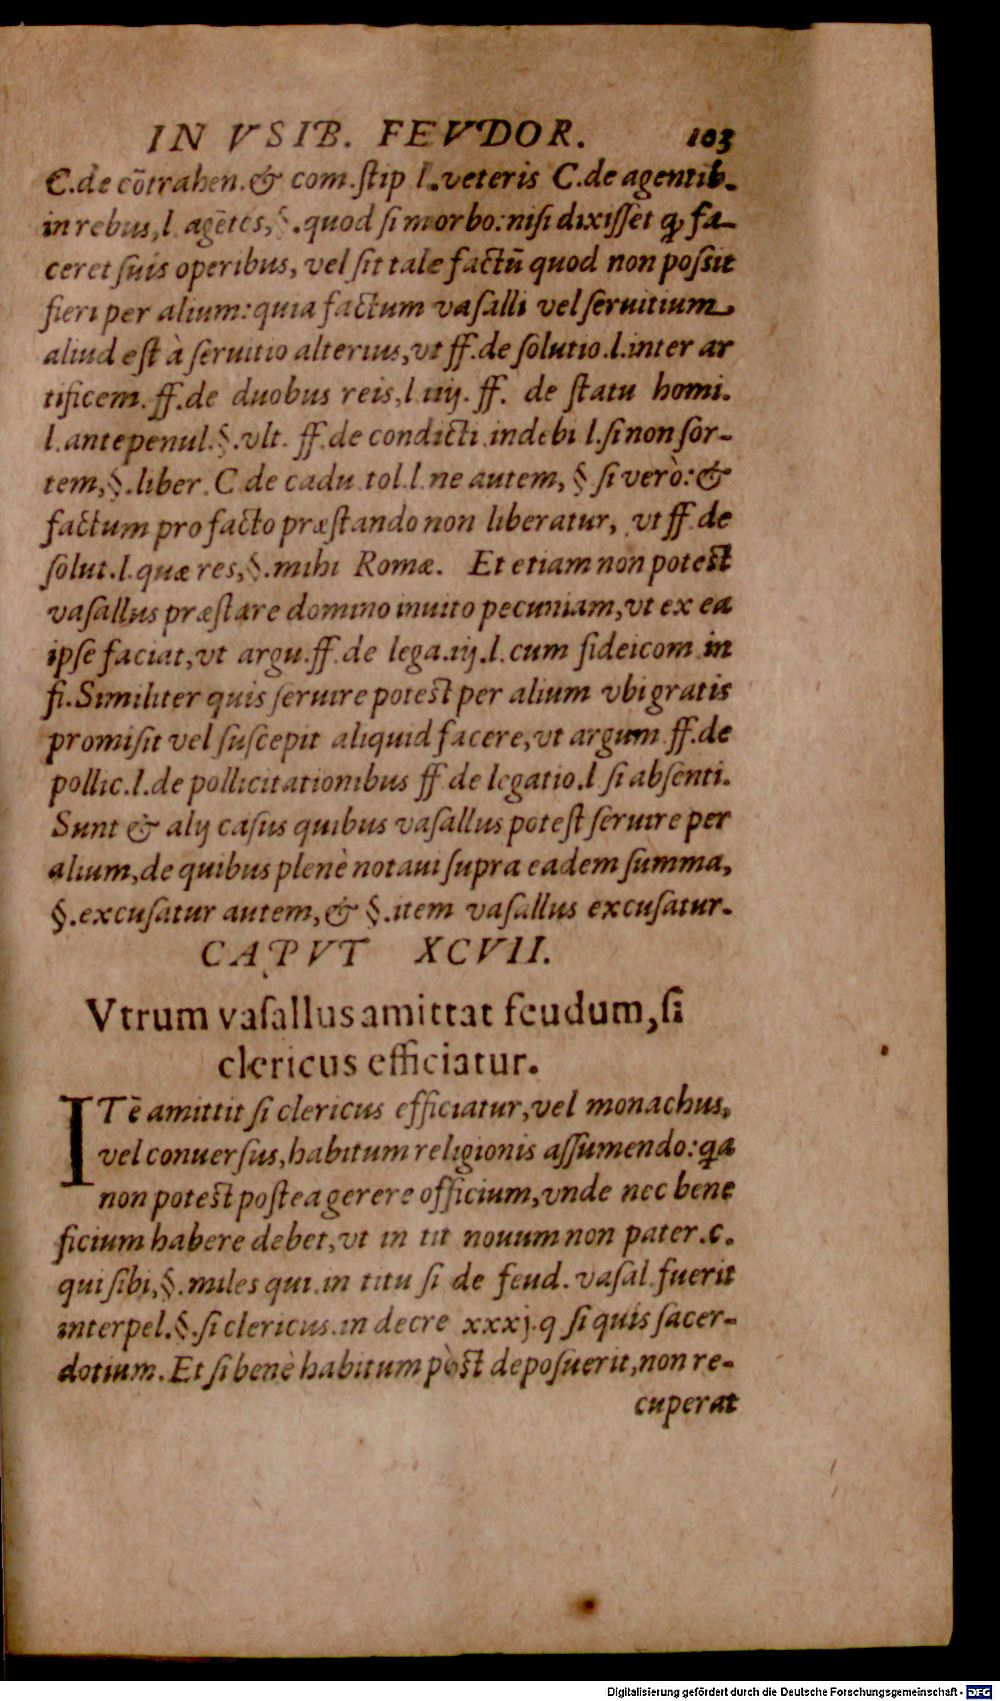 IN VSIB. FEVDOR. 103
C.de cõtrahen.& com.ſtip l.veteris C.de agentib.
in rebus,l agẽtes,§.quod ſi morbo:niſi dixiſſet ꝙ fa-
ceret ſuis operibus, vel ſit tale factũ quod non poſsit
fieri per alium:quia factum vaſalli vel ſeruitium
aliud eſt à ſeruitio alterius,vt ff.de ſolutio.l.inter ar
tificem.ff.de duobus reis,l iiij.ff. de ſtatu homi.
l.antepenul.§.vlt. ff.de condicti indebi l.ſi non ſor-
tem,§.liber.C de cadu tol.l.ne autem, § ſi verò:&
factum pro facto præſtando non liberatur, vt ff de
ſolut.l.quæ res,§.mihi Romæ. Et etiam non poteſt
vaſallus præſtare domino inuito pecuniam,vt ex ea
ipſe faciat,vt argu.ff.de lega.iij.l.cum fideicom in
fi.Similiter quis ſeruire poteſt per alium vbi gratis
promiſit vel ſuſcepit aliquid facere,vt argum ff.de
pollic.l.de pollicitationibus ff de legatio.l ſi abſenti.
Sunt & alij caſus quibus vaſallus poteſt ſeruire per
alium,de quibus plenè notaui ſupra eadem ſumma,
§.excuſatur autem,& §.item vaſallus excuſatur.
CAPVT XCVII.
Vtrum vaſallus amittat feudum,ſi
clericus efficiatur.
ITẽ amittit ſi clericus efficiatur,vel monachus,
vel conuerſus,habitum religionis aſſumendo:ꝗa
non poteſt poſtea gerere officium,vnde nec bene
ficium habere debet,vt in tit nouum non pater.c.
qui ſibi,§.miles qui.in titu ſi de feud.vaſal.fuerit
interpel.§.ſi clericus.in decre xxxj.q ſi quis ſacer-
dotium.Et ſi benè habitum pòſt depoſuerit,non re-
cuperat
Digitalisierung gefördert durch die Deutsche Forschungsgemeinschaft - DFG